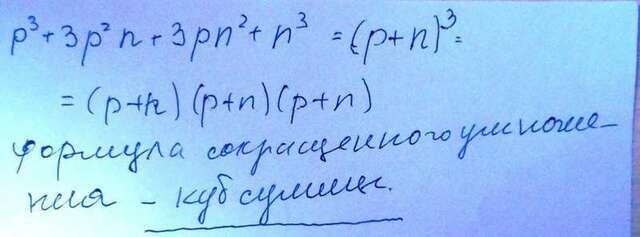 p³+3p²n+3pn²+n³ =(p+n)³=
=(p+n)(p+n)(p+n)
формула сокращенного умноже-
ния – куб суммы.